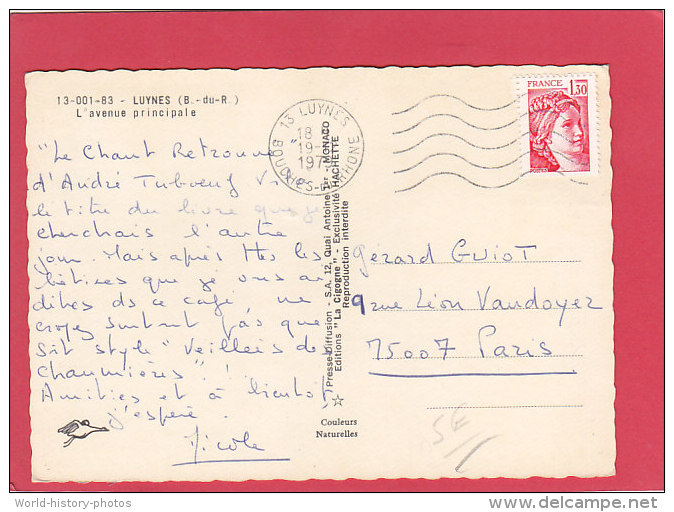 13-001-83 - LUYNES (B.-du-R.)
L'avenue principale
"Le Chant Retrouvé"
d'André Tuboeuf
le titre du livre que je
cherchais l'autre
jour. Mais après ttes les
bêtises que je vous ai
dites ds ce café ne
croyez surtout pas que
soit style "Veillées des
Chaumières" !
Amitiés et à bientôt,
j'espère.
Nicole
13 LUYNES
18
19-
197
BOUCHES-DU-RHONE
Presse-Diffusion - S.A. 12, Quai Antoine 1er MONACO
Editions "La Cigogne" - Exclusivité HACHETTE
Reproduction interdite
Couleurs
Naturelles
FRANCE
1,30
POSTES
Gérard Guiot
9 rue Léon Vaudoyer
75007 Paris
5€
World-history-photos
delcampe.net